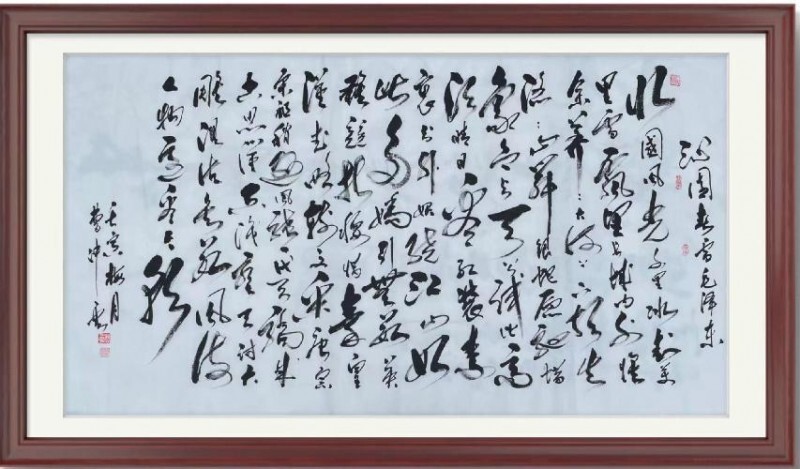 沁園春雪毛泽东
北國風光千里冰封萬
里雪飘望长城内外惟
余莽莽大河上下顿失
滔滔山舞银蛇原驰蜡
象欲与天公试比高
须晴日看红装素
裹分外妖娆江山如
此多嬌引無数英
雄競折腰惜秦皇
漢武略输文采唐宗
宋祖稍逊風骚一代天骄成
吉思汗只识弯弓射大
雕俱往矣数風流
人物还看今朝
壬寅梅月